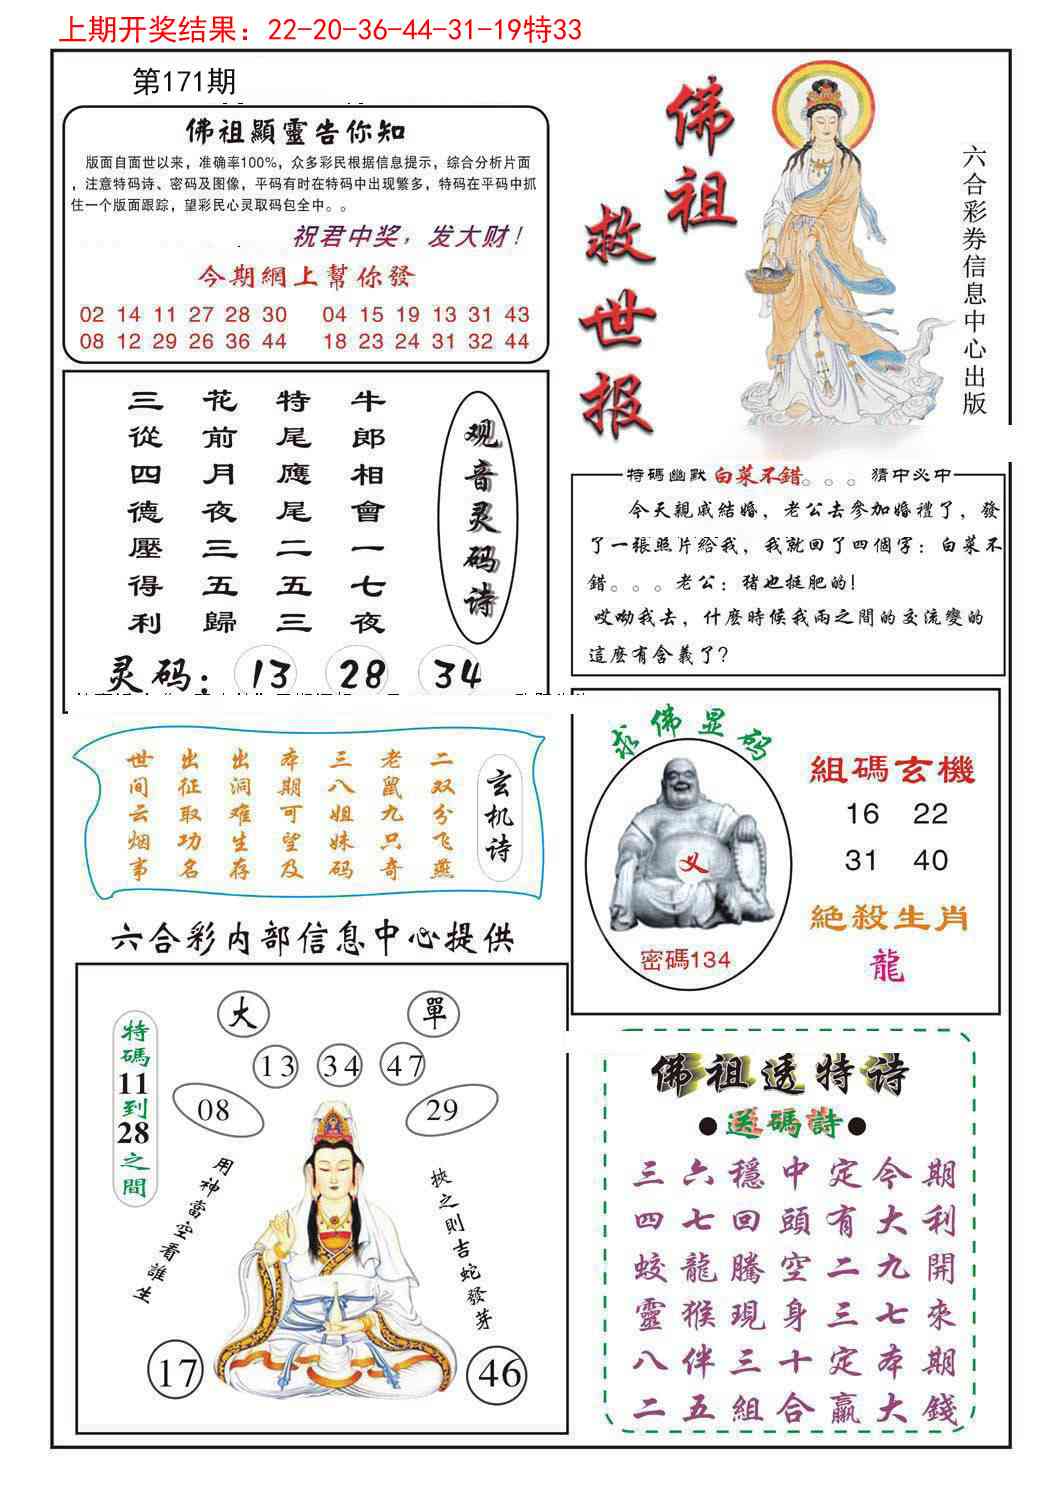 上期开奖结果：22-20-36-44-31-19特33
第171期
佛祖顯靈告你知
版面自面世以来，准确率100%，众多彩民根据信息提示，综合分析片面
，注意特码诗、密码及图像，平码有时在特码中出现繁多，特码在平码中抓
住一个版面跟踪，望彩民心灵取码包全中。。
祝君中奖，发大财！
今期網上幫你發
02 14 11 27 28 30 04 15 19 13 31 43
08 12 29 26 36 44 18 23 24 31 32 44
佛祖
救世报
六合彩券信息中心出版
观音灵码诗
牛郎相會一七夜
特尾應尾二五三
花前月夜三五歸
三從四德壓得利
灵码：13 28 34
特碼幽默 白菜不錯。。。猜中必中
今天親戚結婚，老公去參加婚禮了，發
了一張照片給我，我就回了四個字：白菜不
錯。。。老公：猪也挺肥的！
哎呦我去，什麽時候我兩之間的交流變的
這麽有含義了？
玄机诗
二双分飞燕
老鼠九只奇
三八姐妹码
本期可望及
出洞难生存
出征取功名
世间云烟事
求佛显码
义
密碼134
組碼玄機
16 22
31 40
絕殺生肖
龍
六合彩内部信息中心提供
大 單
13 34 47
08 29
特碼11到28之間
用神當空看誰生
挾之則吉蛇發芽
17 46
佛祖透特诗
●送碼詩●
三六穩中定今期
四七回頭有大利
蛟龍騰空二九開
靈猴現身三七來
八伴三十定本期
二五組合贏大錢